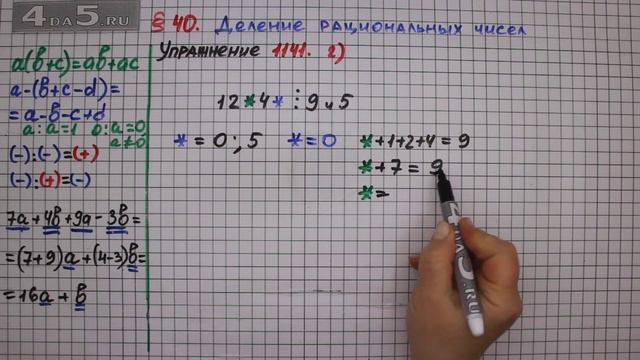 4DA5.RU
§ 40. Деление рациональных чисел
Упражнение 1141. г)
a(b+c)=ab+ac
a-(b+c-d)=
=a-b-c+d
a:a=1 0:a=0
a≠0
(-):(-)=(+)
(-):(+)=(-)
7a+4b+9a-3b=
=(7+9)a+(4-3)b=
=16a+b
12*4* ⋮ 9 и 5
*=0; 5 *=0
*+1+2+4=9
*+7=9
*=
4DA5.RU